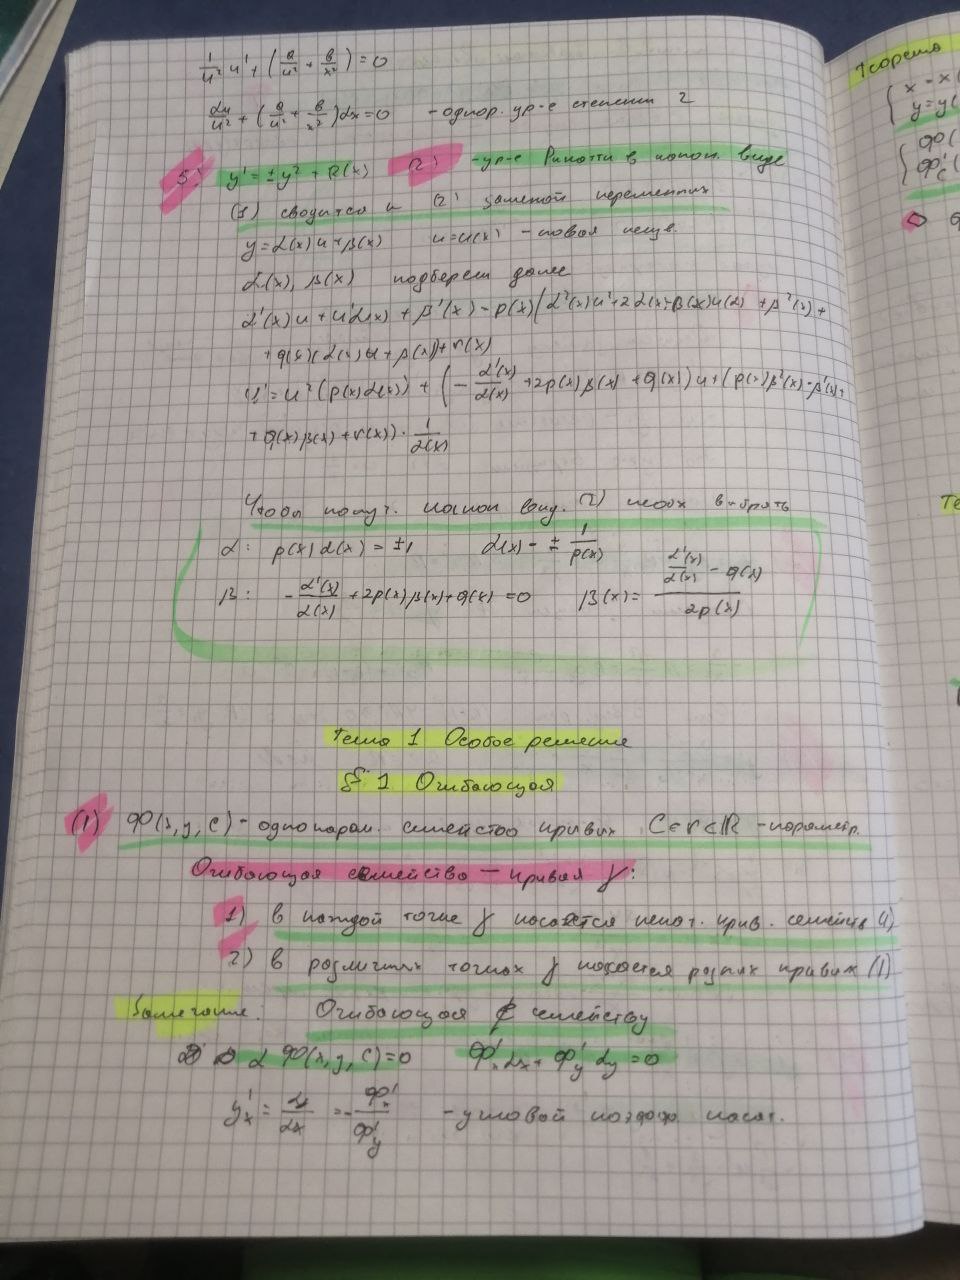 1/u² u' + (a/u² + b/x²) = 0
du/u² + (a/u² + b/x²)dx = 0 - однор. ур-е степени 2
5) y' = ± y² + R(x) (2) - ур-е Рикатти в канон. виде
(1) сводится к (2) заменой переменных
y = α(x)u + β(x) u = u(x) - новая неизв.
α(x), β(x) подберем далее
α'(x)u + u'α(x) + β'(x) - p(x)(α²(x)u² + 2α(x)β(x)u(x) + β²(x)) +
+ q(x)(α(x)u + β(x)) + r(x)
u' = u²(p(x)α(x)) + (- α'(x)/α(x) + 2p(x)β(x) + q(x))u + (p(x)β²(x) - β'(x) +
+ q(x)β(x) + r(x)) · 1/α(x)
Чтобы получ. канон вид. (2) необх выбрать
α: p(x)α(x) = ±1 α(x) = ± 1/p(x)
β: - α'(x)/α(x) + 2p(x)β(x) + q(x) = 0 β(x) = (α'(x)/α(x) - q(x))/2p(x)
Тема 1 Особое решение
§ 1 Огибающая
(1) Φ(x, y, C) - однопарам. семейство кривых C ∈ r ⊂ ℝ - параметр.
Огибающая семейства - кривая γ:
1) в каждой точке γ касается некот. крив. семейств (1)
2) в различных точках γ касается разных кривых (1)
Замечание: Огибающая ∉ семейству
d Φ(x, y, C) = 0 Φ'x dx + Φ'y dy = 0
y'x = dy/dx = - Φ'x/Φ'y - угловой коэфф. касат.
Теорема
{ x = x(
y = y(
{ Φ(
Φ'c (